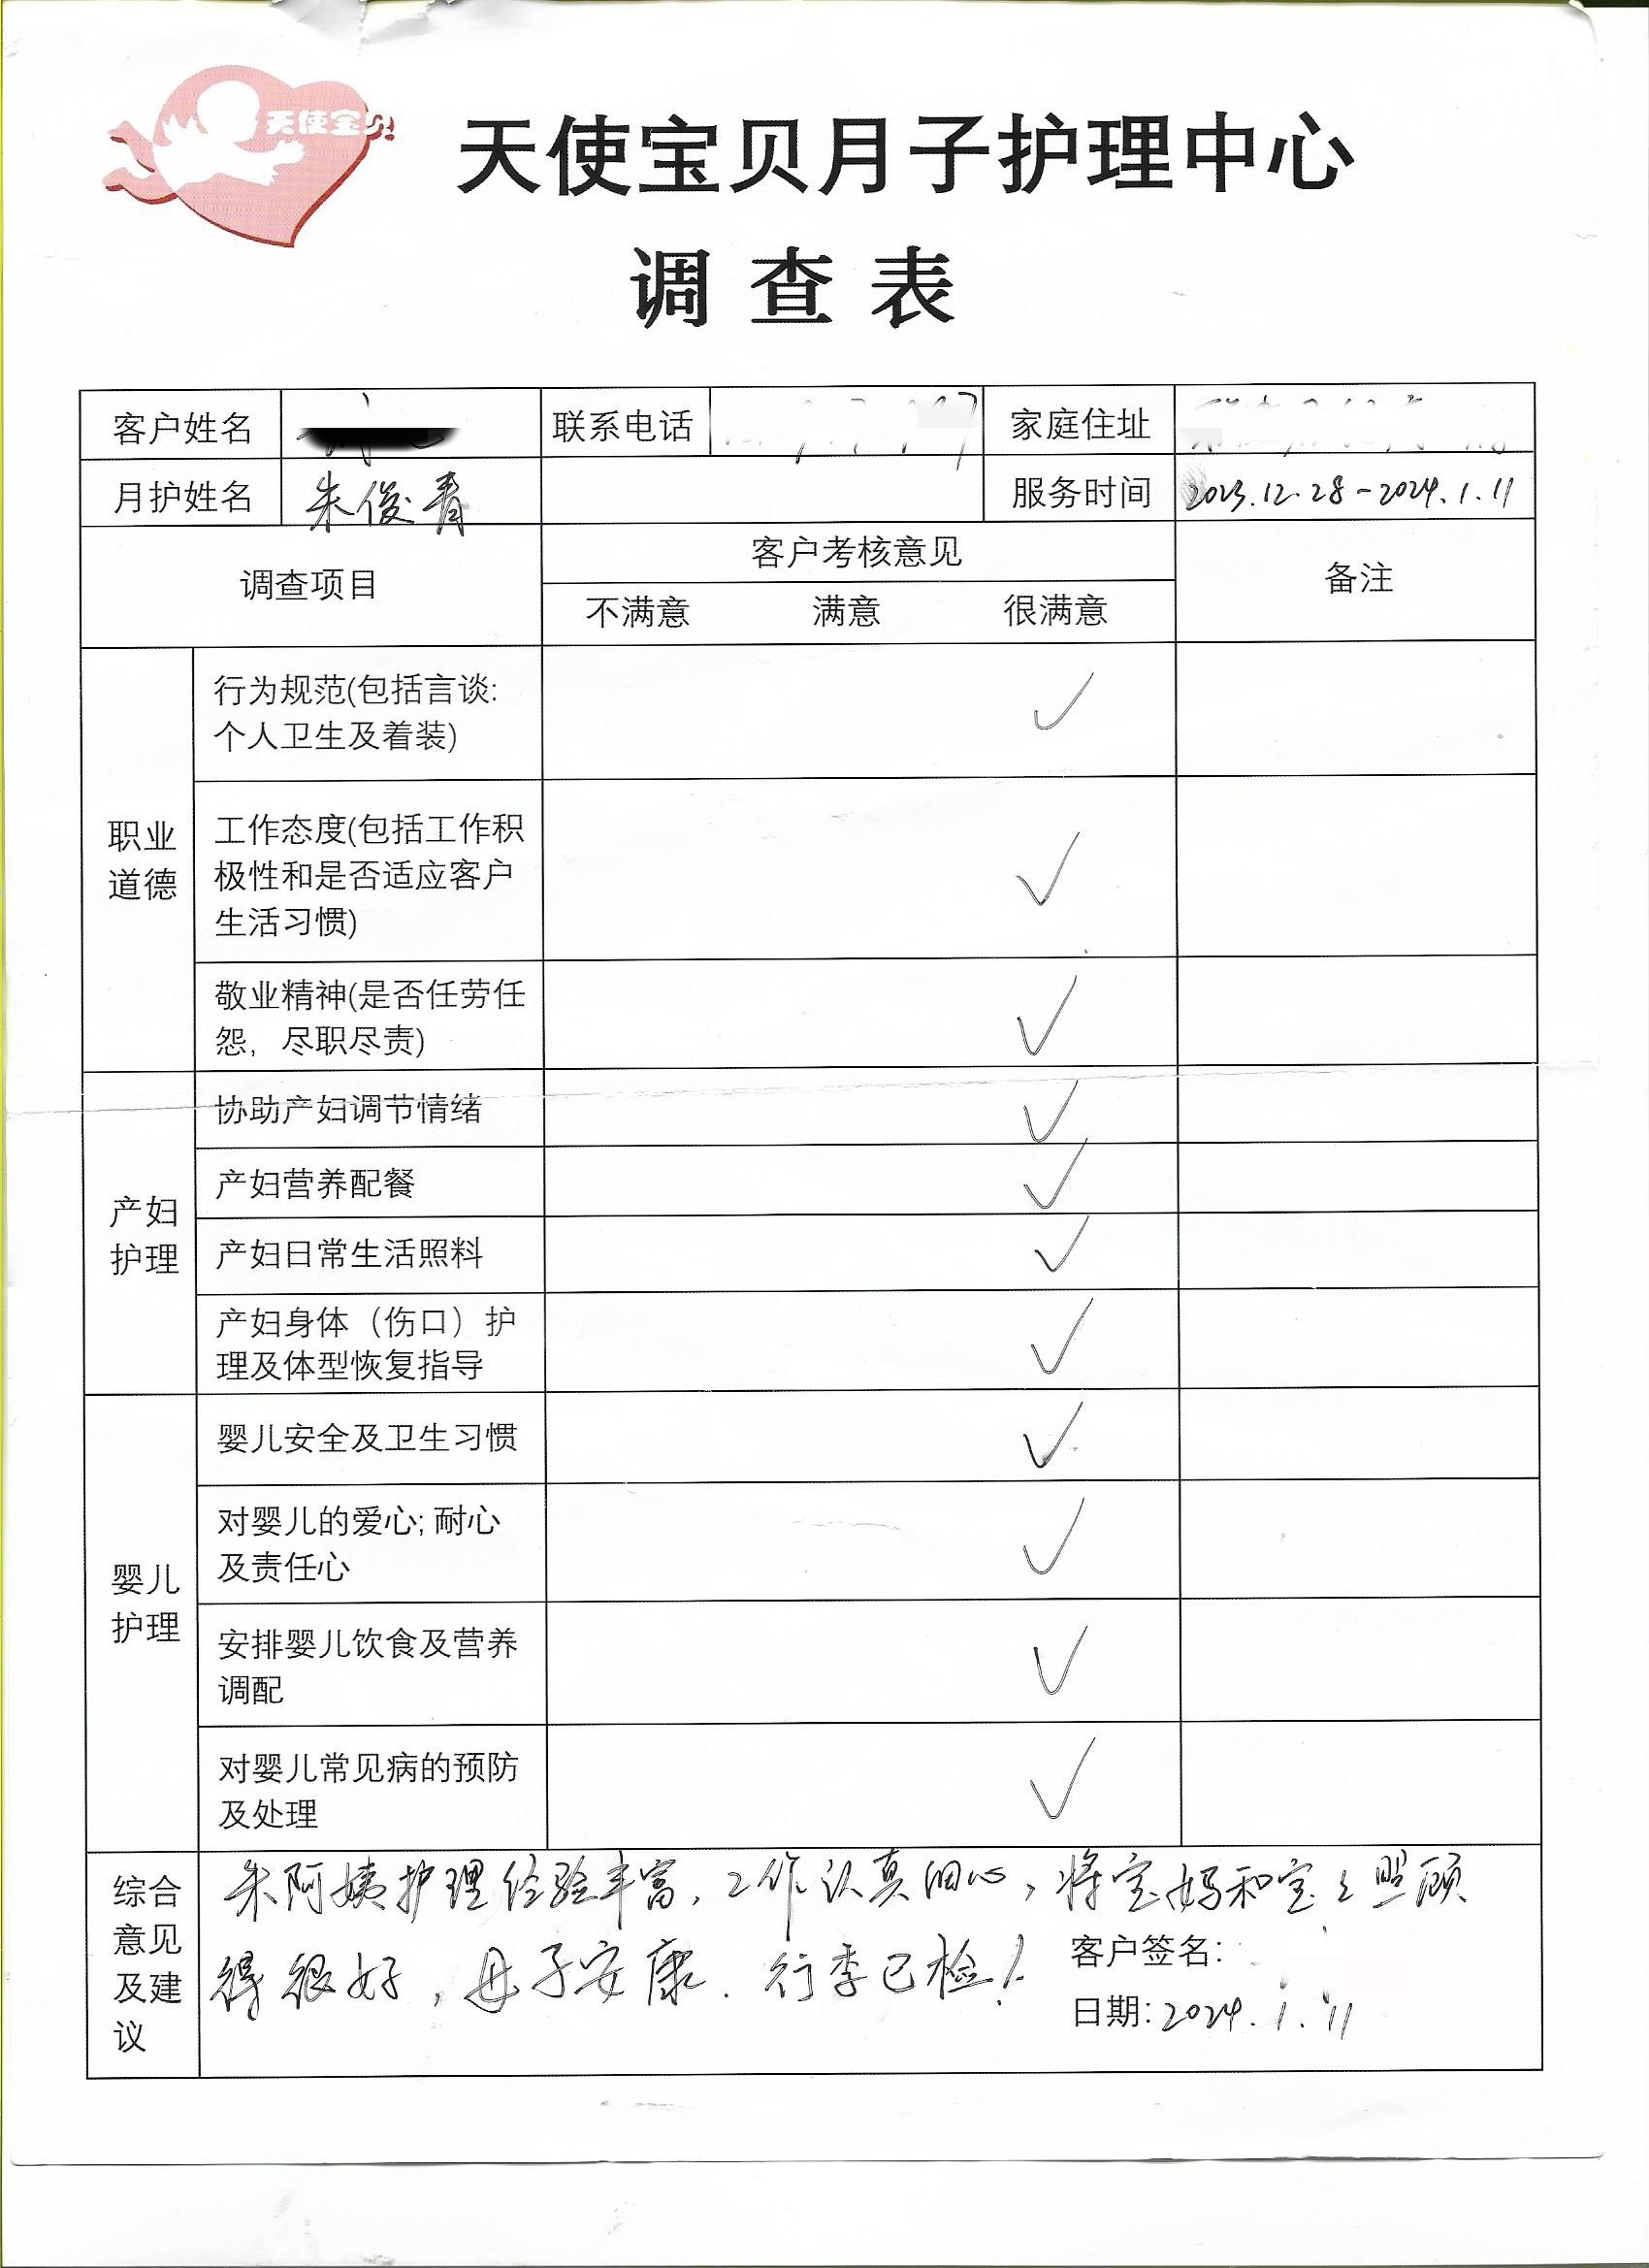 天使宝贝
天使宝贝月子护理中心
调查表
客户姓名 联系电话 家庭住址
月护姓名 朱俊青 服务时间 2023.12.28-2024.1.11
调查项目 客户考核意见 备注
不满意 满意 很满意
职业
道德
行为规范(包括言谈:
个人卫生及着装) ✓
工作态度(包括工作积
极性和是否适应客户
生活习惯) ✓
敬业精神(是否任劳任
怨,尽职尽责) ✓
产妇
护理
协助产妇调节情绪 ✓
产妇营养配餐 ✓
产妇日常生活照料 ✓
产妇身体（伤口）护
理及体型恢复指导 ✓
婴儿
护理
婴儿安全及卫生习惯 ✓
对婴儿的爱心; 耐心
及责任心 ✓
安排婴儿饮食及营养
调配 ✓
对婴儿常见病的预防
及处理 ✓
综合
意见
及建
议
朱阿姨护理经验丰富,工作认真细心,将宝妈和宝宝照顾
得很好,母子安康.行李已检!
客户签名:
日期:2024.1.11